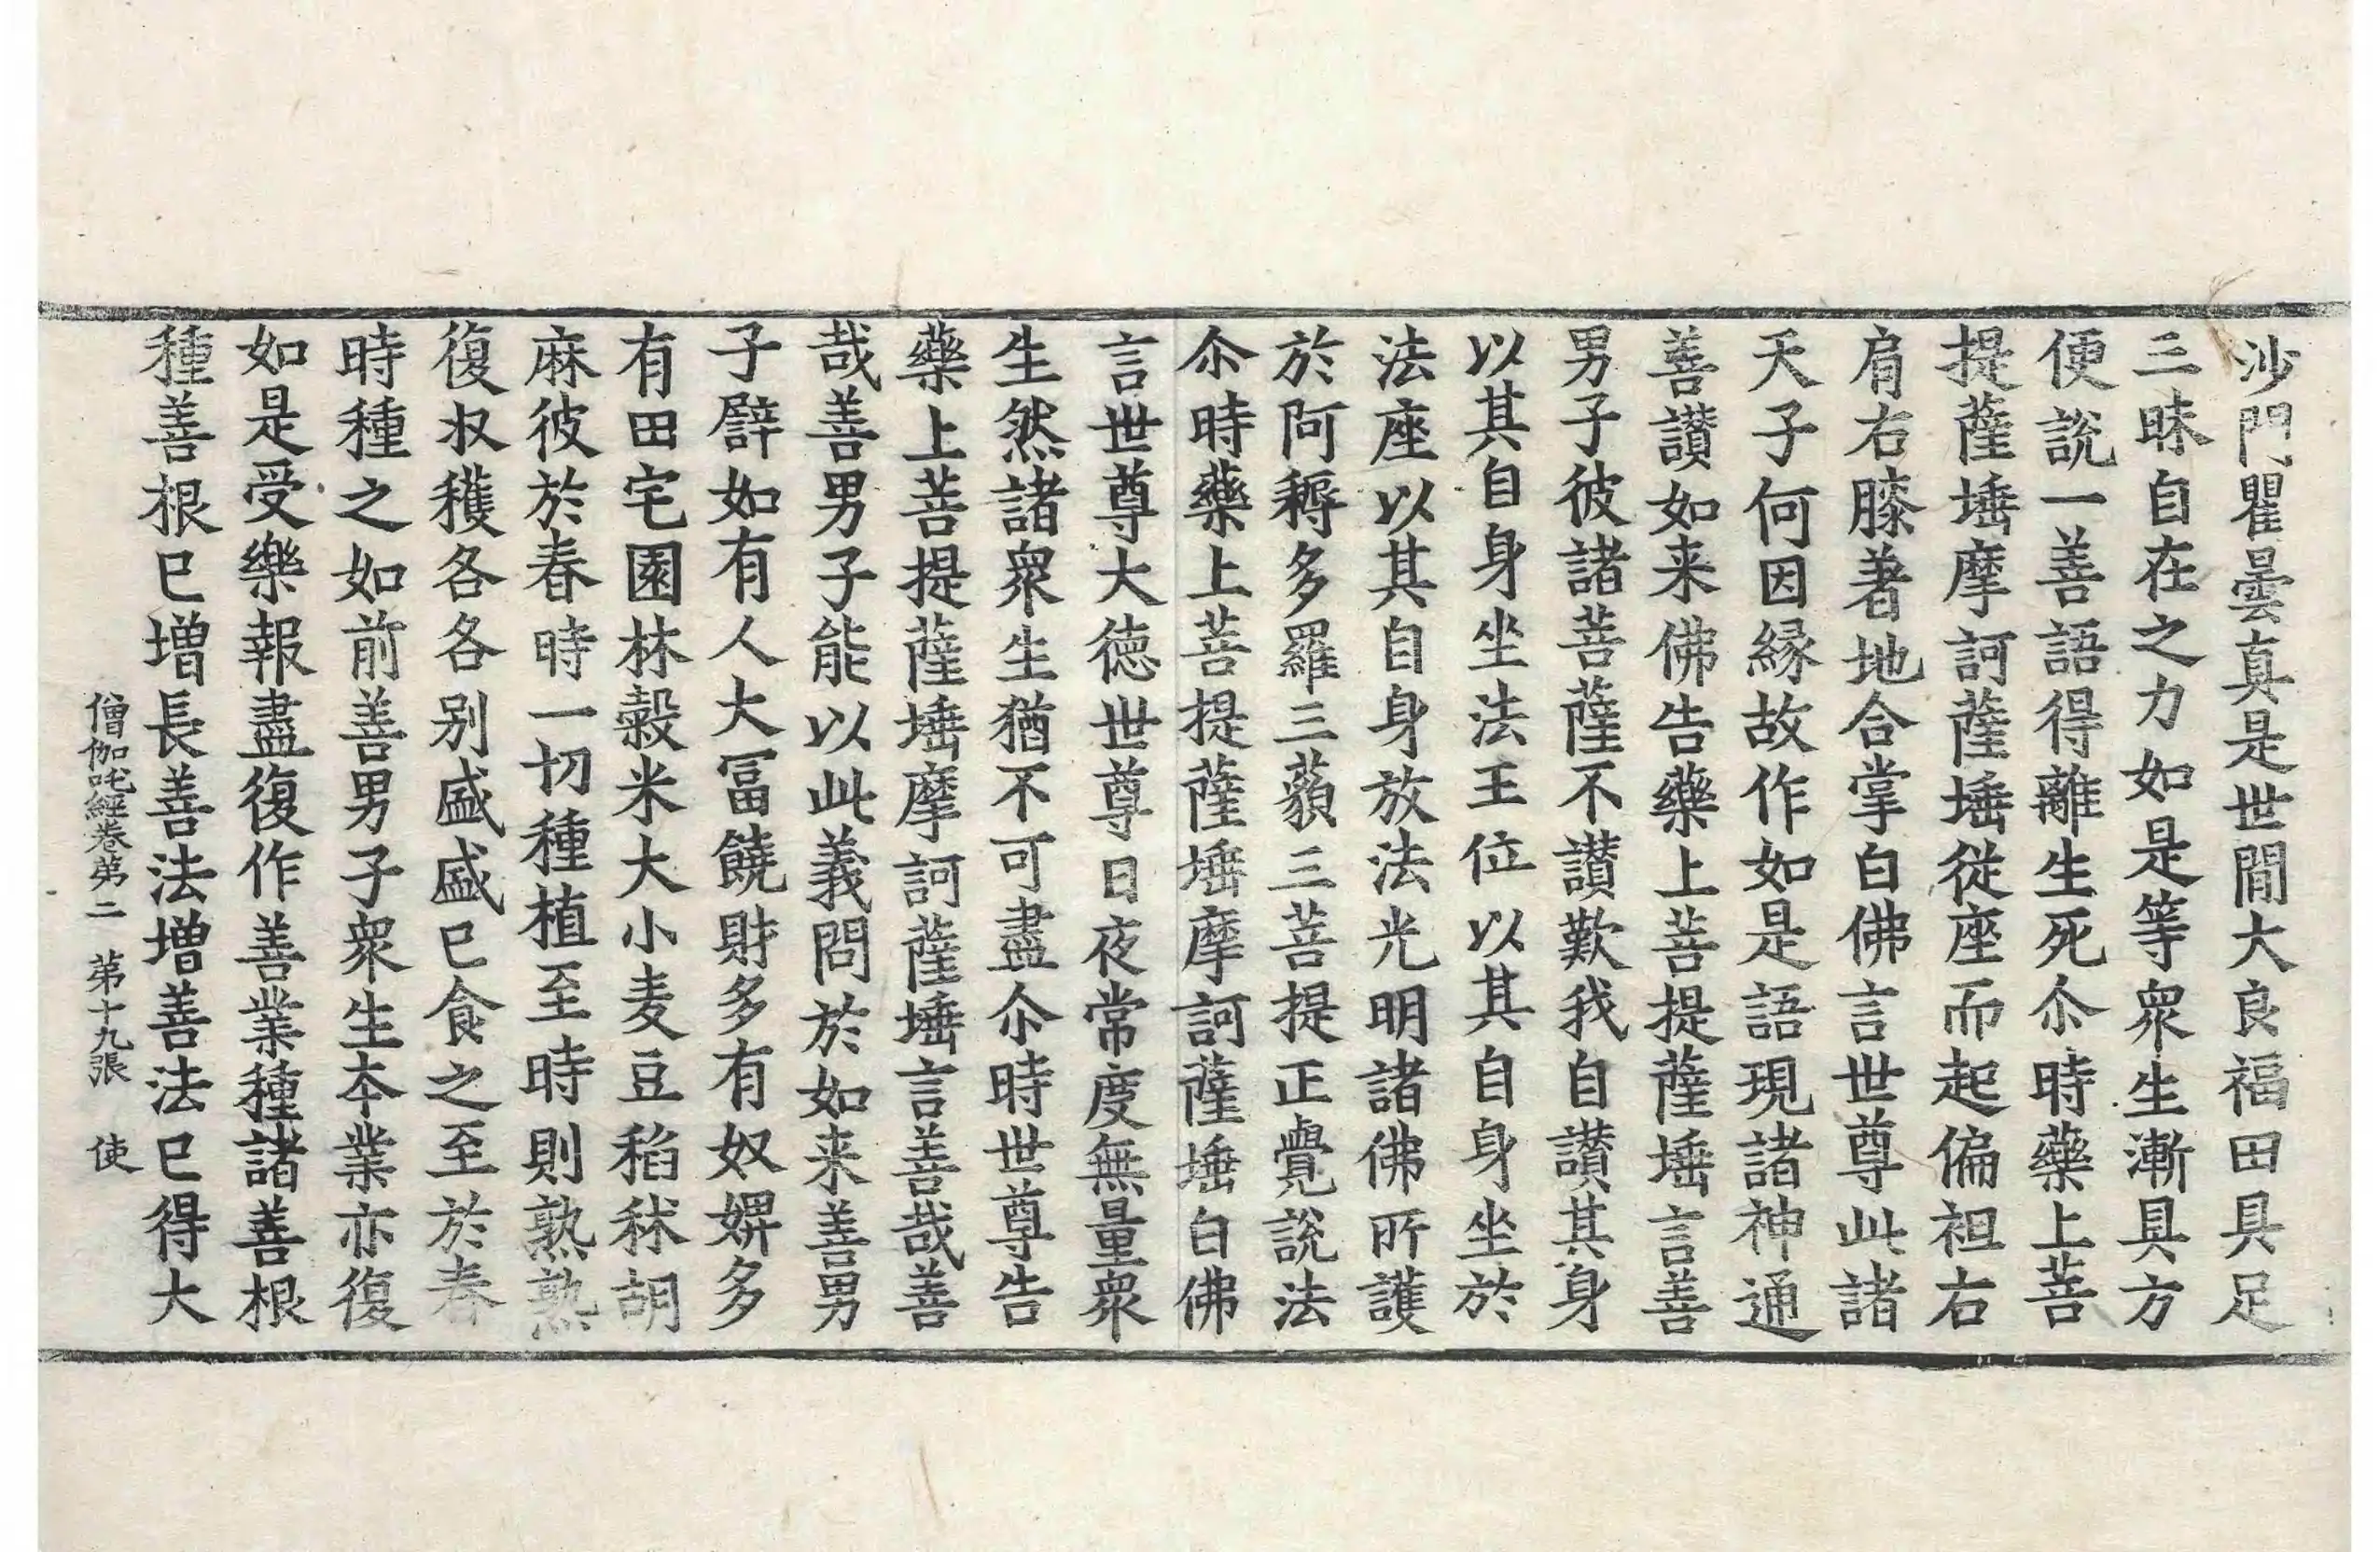 沙門瞿曇真是世間大良福田具足
三昧自在之力如是等衆生漸具方
便說一善語得離生死尒時藥上菩
提薩埵摩訶薩埵從座而起偏袒右
肩右膝著地合掌白佛言世尊此諸
天子何因縁故作如是語現諸神通
善讃如来佛告藥上菩提薩埵言善
男子彼諸菩薩不讃歎我自讃其身
以其自身坐法王位以其自身坐於
法座以其自身放法光明諸佛所護
於阿耨多羅三藐三菩提正覺說法
尒時藥上菩提薩埵摩訶薩埵白佛
言世尊大德世尊日夜常度無量衆
生然諸衆生猶不可盡尒時世尊告
藥上菩提薩埵摩訶薩埵言善哉善
哉善男子能以此義問於如来善男
子譬如有人大冨饒財多有奴婢多
有田宅園林穀米大小麦豆稻秫胡
麻彼於春時一切種植至時則熟熟
復收穫各各别盛盛已食之至於春
時種之如前善男子衆生本業亦復
如是受樂報盡復作善業種諸善根
種善根已增長善法增善法已得大
僧伽吒經卷第二　第十九張　使